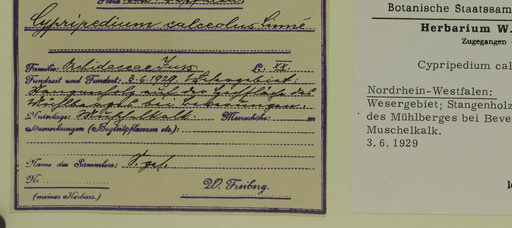 Cypripedium calceolus Linné.
Familie: Orchidaceae Juss. L: XX.
Fundzeit und Fundort: 3.6.1929. Wesergebiet:
Stangenholz auf der
Mühlberges bei Beverungen.
Unterlage: Muschelkalk. Meereshöhe: m
Bemerkungen (Begleitpflanzen etc.):
Name des Sammlers:
Nr.
(meines Herbars.)
W. Freiberg.
Botanische Staatssam
Herbarium W.
Zugegangen
Cypripedium cal
Nordrhein-Westfalen:
Wesergebiet; Stangenholz
des Mühlberges bei Beve
Muschelkalk.
3. 6. 1929